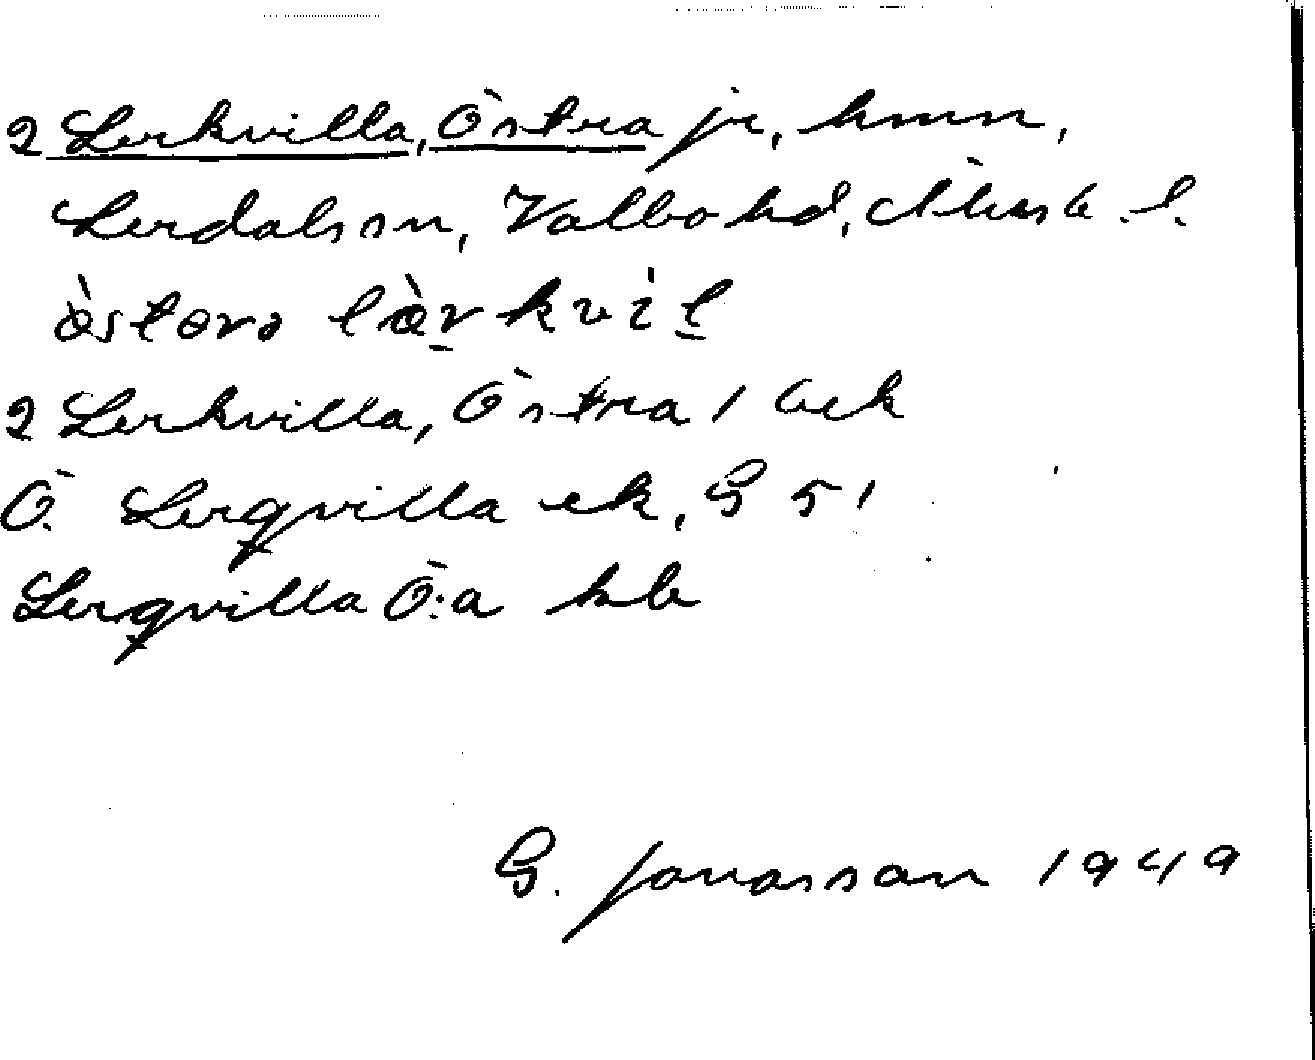 2 Lerkvilla, Östra jr, hmn,
Lerdals sn, Valbo hd, Älvsb. l.
òstərə lærkvil
2 Lerkvilla, Östra / bek
Ö. Lergvilla ek, G 51
Lergvilla Ö:a hb
G. Jonasson 1949